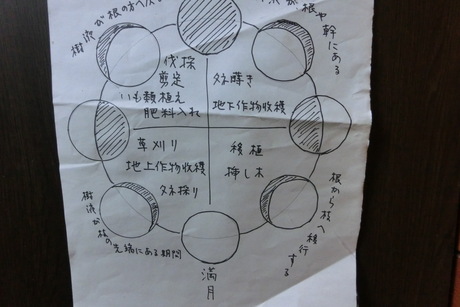 樹液が根の方へ
根や幹にある
伐採
剪定
いも類植え
肥料入れ
タネ蒔き
地下作物収穫
草刈り
地上作物収穫
タネ採り
移植
挿し木
樹液が枝の先端にある期間
根から枝へ移行する
満月